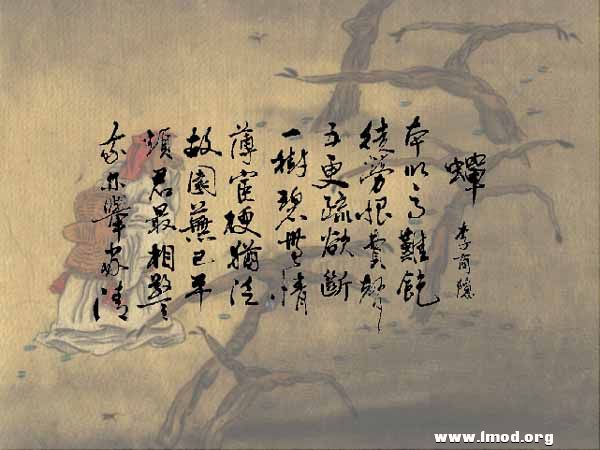 蟬
李商隱
本以高難飽
徒勞恨費聲
五更疏欲斷
一樹碧無情
薄宦梗猶泛
故園蕪已平
煩君最相警
我亦舉家清
www.lmod.org